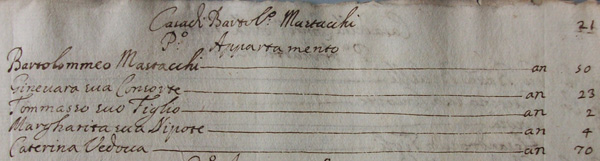 Casa di Bartol.º Mastacchi 21
P.º Appartamento
Bartolommeo Mastacchi an 50
Ginevara sua Consorte an 23
Tommasso suo Figlio an 2
Margharita sua Nipote an 4
Caterina Vedoua an 70